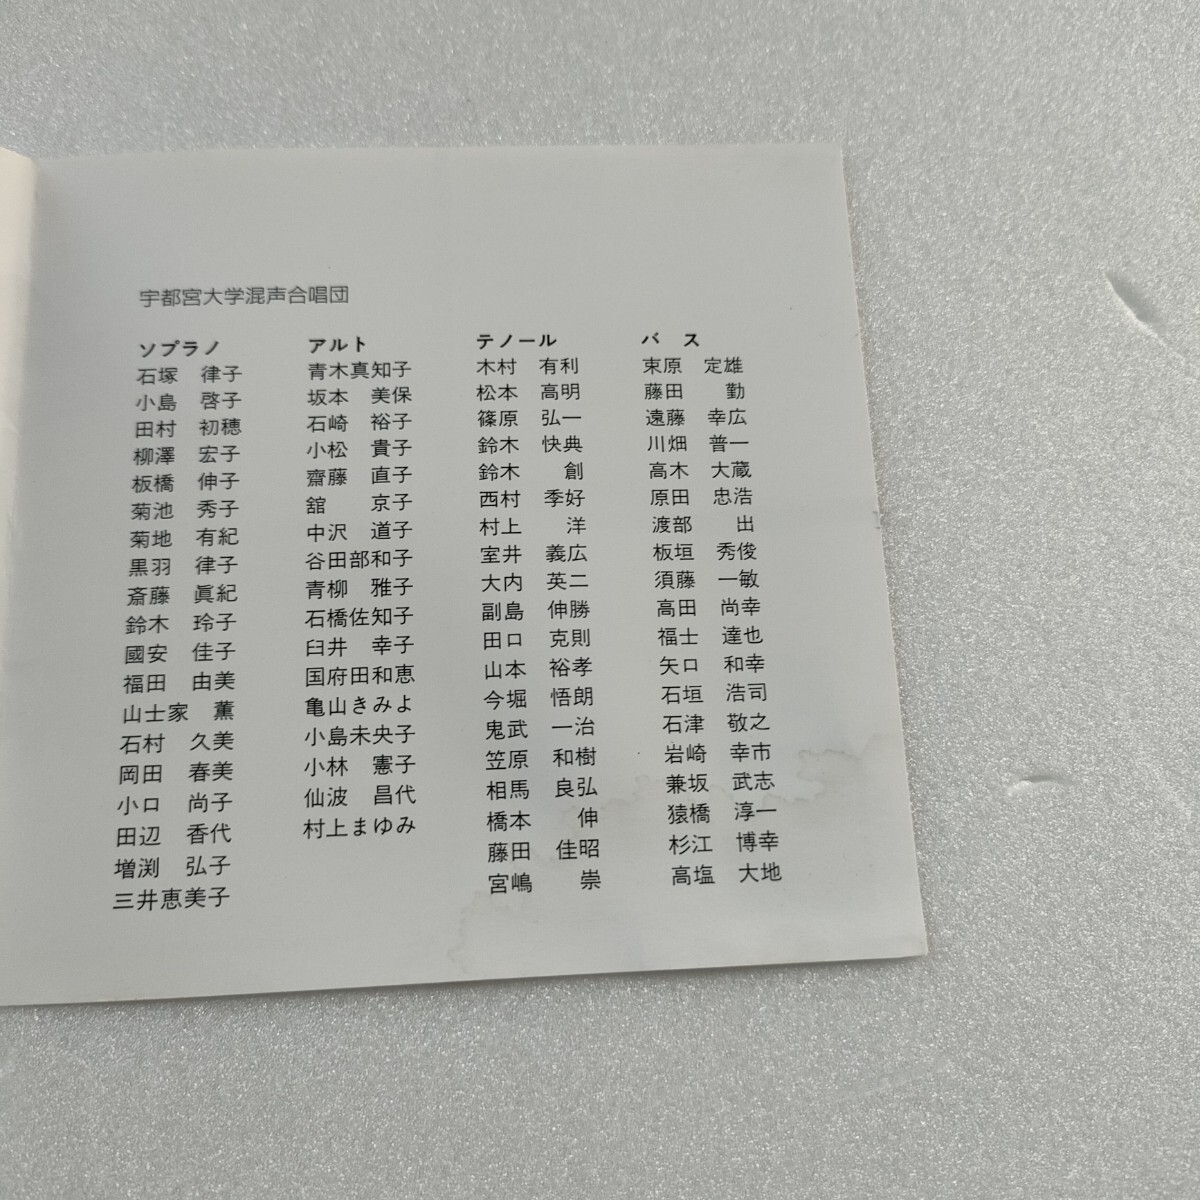 宇都宮大学混声合唱団
ソプラノ
石塚 律子
小島 啓子
田村 初穂
柳澤 宏子
板橋 伸子
菊池 秀子
菊地 有紀
黒羽 律子
斎藤 眞紀
鈴木 玲子
國安 佳子
福田 由美
山士家 薫
石村 久美
岡田 春美
小口 尚子
田辺 香代
増渕 弘子
三井恵美子
アルト
青木真知子
坂本 美保
石崎 裕子
小松 貴子
齋藤 直子
舘 京子
中沢 道子
谷田部和子
青柳 雅子
石橋佐知子
臼井 幸子
国府田和恵
亀山きみよ
小島未央子
小林 憲子
仙波 昌代
村上まゆみ
テノール
木村 有利
松本 高明
篠原 弘一
鈴木 快典
鈴木 創
西村 季好
村上 洋
室井 義広
大内 英二
副島 伸勝
田口 克則
山本 裕孝
今堀 悟朗
鬼武 一治
笠原 和樹
相馬 良弘
橋本 伸
藤田 佳昭
宮嶋 崇
バス
束原 定雄
藤田 勤
遠藤 幸広
川畑 普一
高木 大蔵
原田 忠浩
渡部 出
板垣 秀俊
須藤 一敏
高田 尚幸
福士 達也
矢口 和幸
石垣 浩司
石津 敬之
岩崎 幸市
兼坂 武志
猿橋 淳一
杉江 博幸
高塩 大地